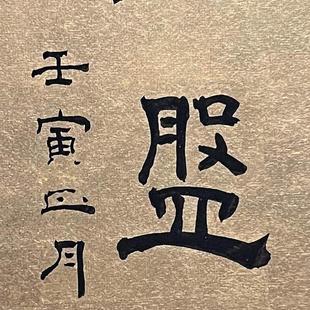 盤
壬寅正月